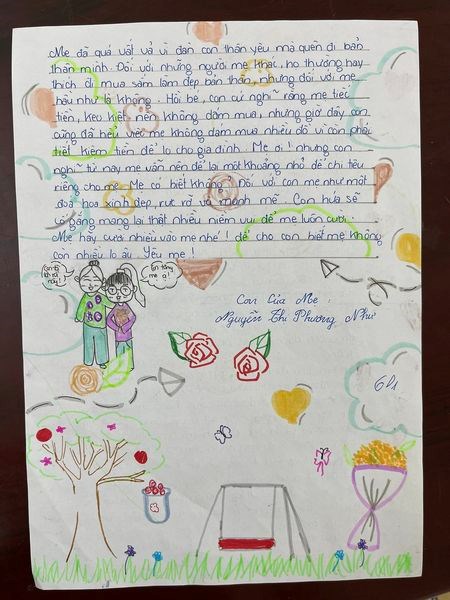 Mẹ đã quá vất vả vì đàn con thân yêu mà quên đi bản
thân mình. Đối với những người mẹ khác, họ thường hay
thích đi mua sắm làm đẹp bản thân, nhưng đối với mẹ
hầu như là không. Hồi bé, con cứ nghĩ rằng mẹ tiếc
tiền, keo kiệt nên không dám mua, nhưng giờ đây con
cũng đã hiểu việc mẹ không dám mua nhiều đồ vì còn phải
tiết kiệm tiền để lo cho gia đình. Mẹ ơi! nhưng con
nghĩ từ nay mẹ vẫn nên để lại một khoảng nhỏ để chi tiêu
riêng cho mẹ. Mẹ có biết không? Đối với con mẹ như một
đoá hoa xinh đẹp, rực rỡ và mạnh mẽ. Con hứa sẽ
cố gắng mang lại thật nhiều niềm vui để mẹ luôn cười.
Mẹ hãy cười nhiều vào mẹ nhé! để cho con biết mẹ không
còn nhiều lo âu. Yêu mẹ!
Con tặng
mẹ ạ!
Con của Mẹ
Nguyễn Thị Phương Như
6A1